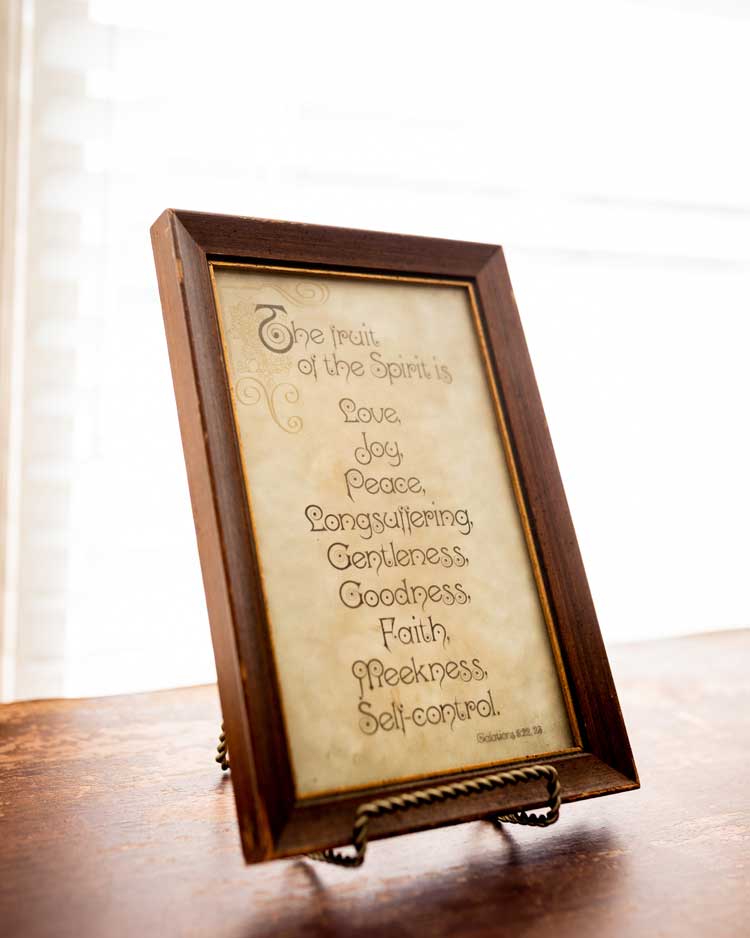 The fruit
of the Spirit is
Love,
Joy,
Peace,
Longsuffering,
Gentleness,
Goodness,
Faith,
Meekness,
Self-control.
Galatians 5:22, 23